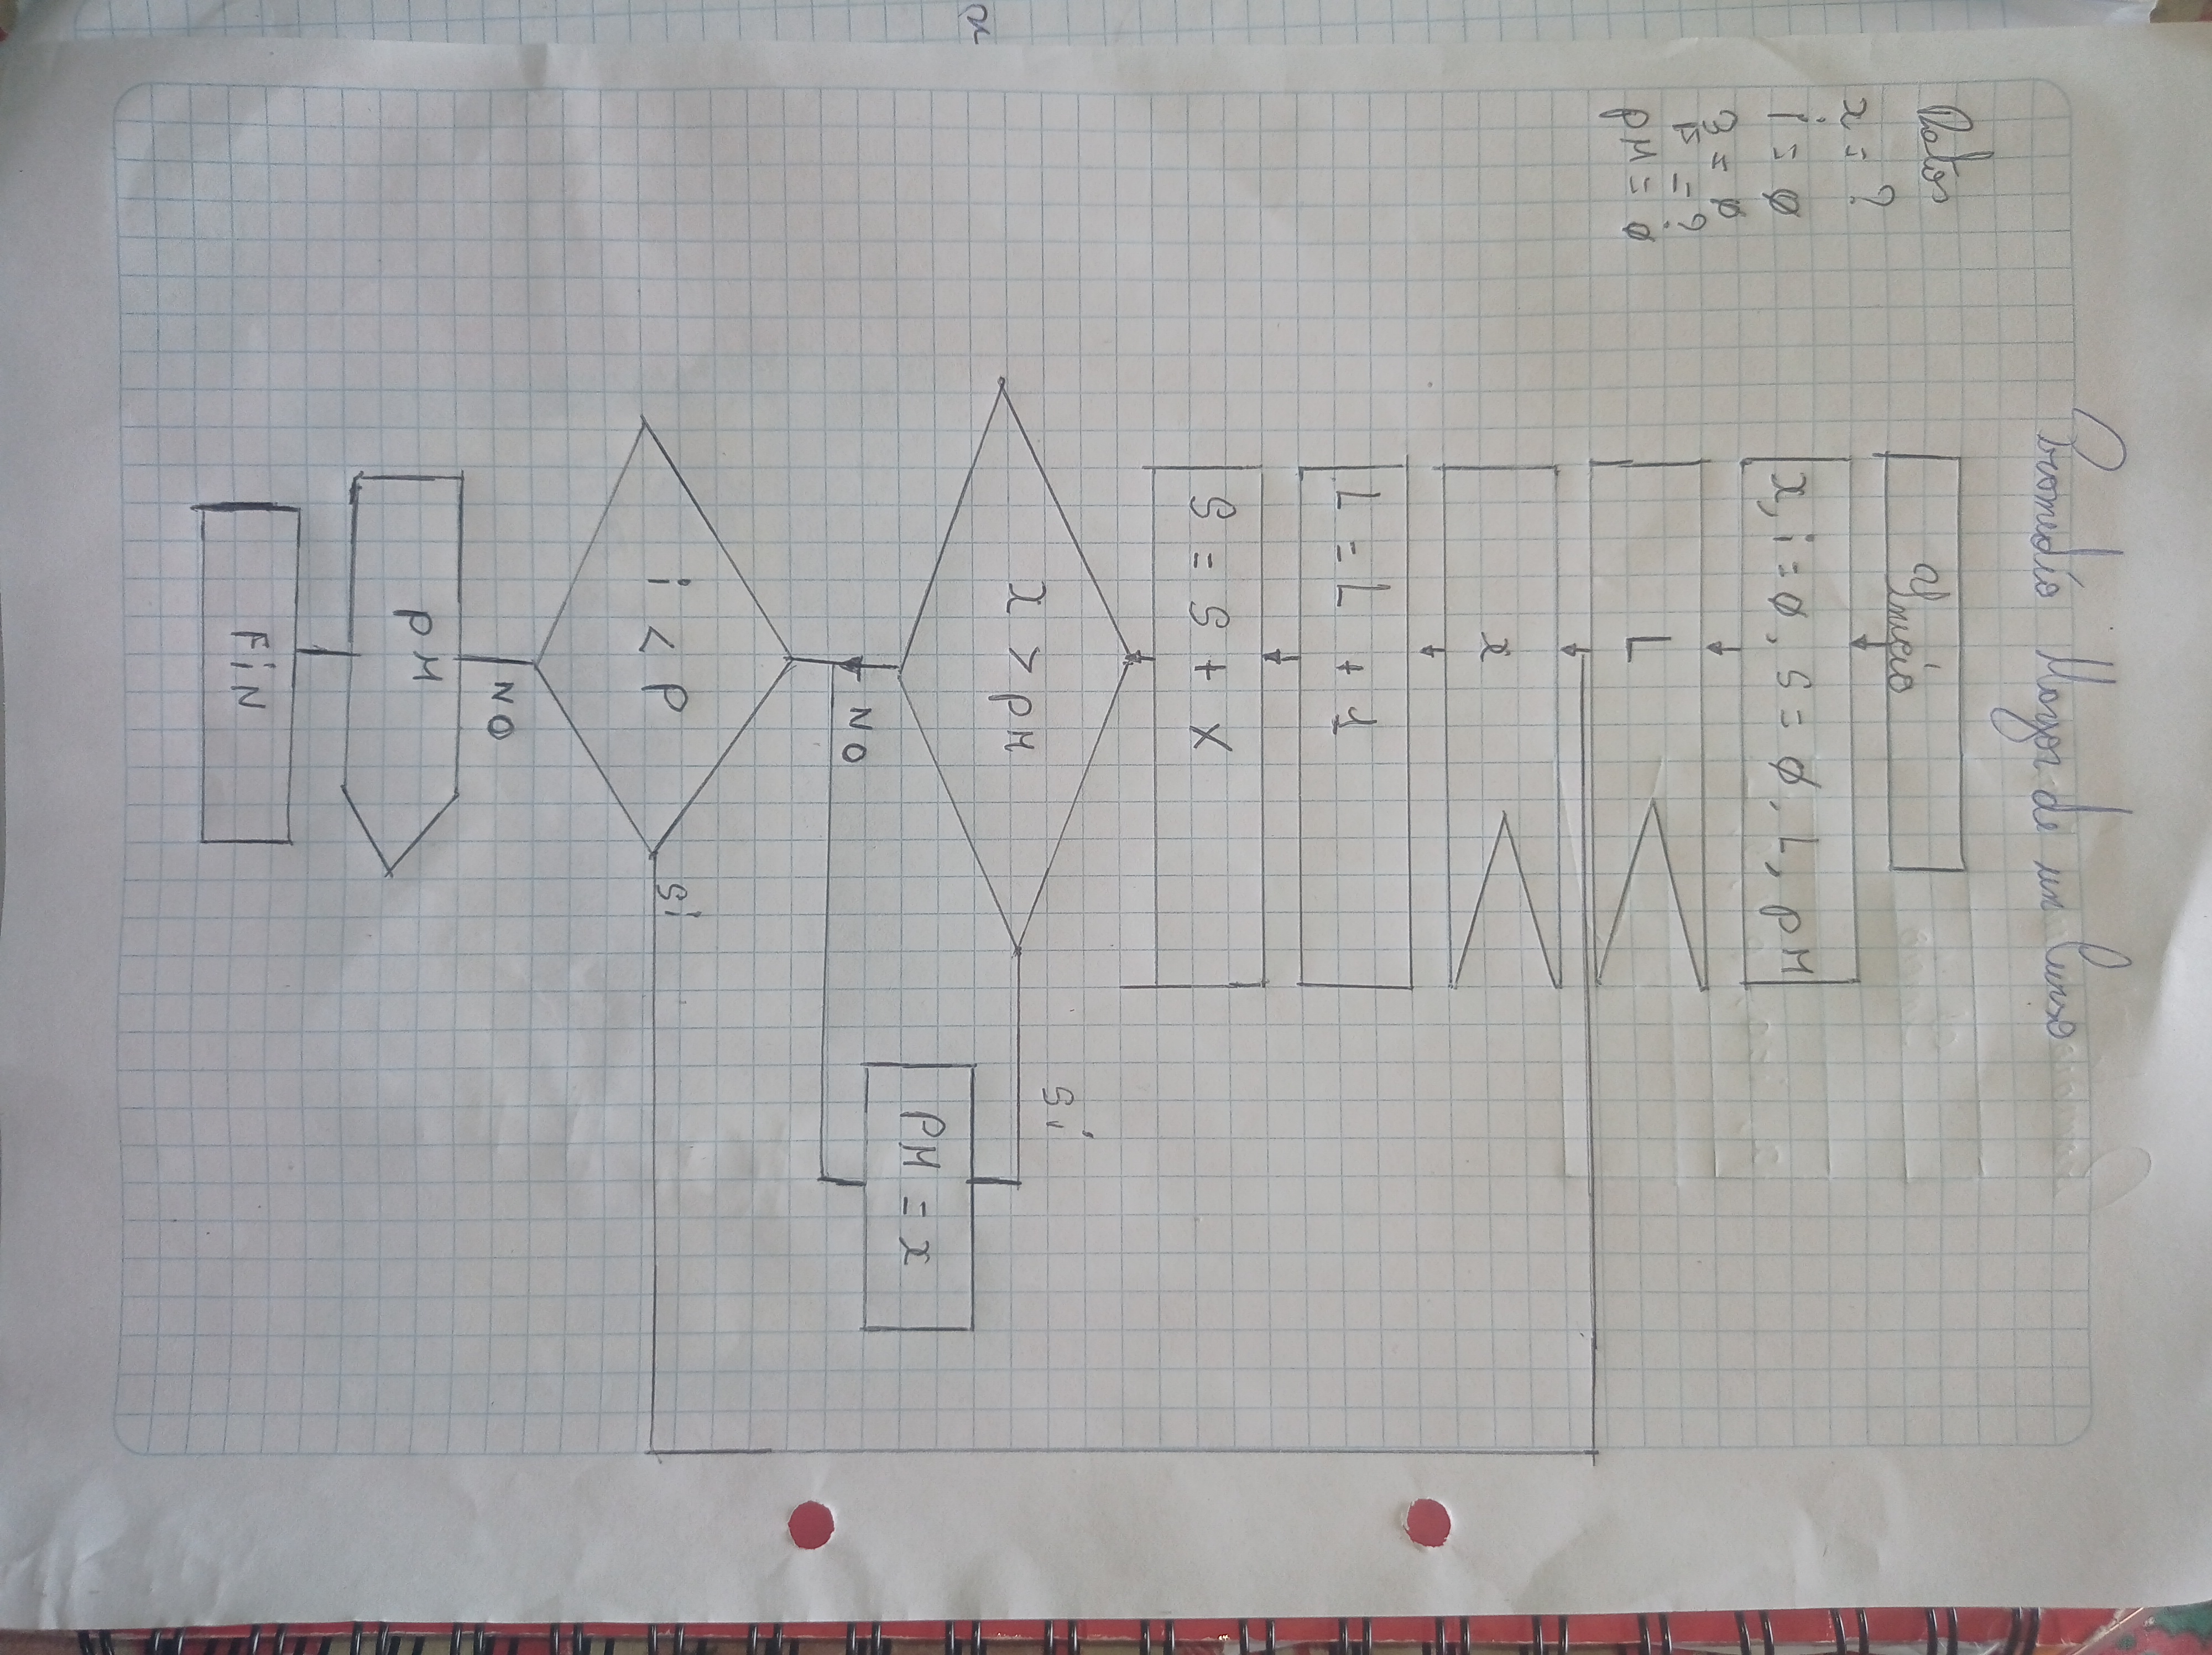 Promedio Mayor de un Curso
Datos
x = ?
i = ø
S = ø
L = ?
PM = ø
Inicio
x, i = ø, S = ø, L, PM
L
x
L = L + 1
S = S + X
x > PM
Si
PM = x
NO
i < P
Si
NO
PM
FiN